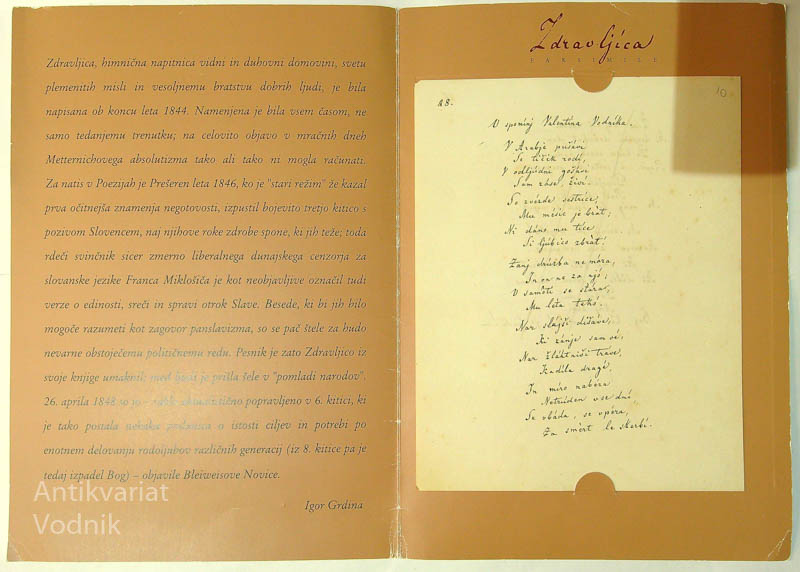 Zdravljica, himnična napitnica vidni in duhovni domovini, svetu
plemenitih misli in vesoljnemu bratstvu dobrih ljudi, je bila
napisana ob koncu leta 1844. Namenjena je bila vsem časom, ne
samo tedanjemu trenutku; na celovito objavo v mračnih dneh
Metternichovega absolutizma tako ali tako ni mogla računati.
Za natis v Poezijah je Prešeren leta 1846, ko je "stari režim" že kazal
prva očitnejša znamenja negotovosti, izpustil bojevito tretjo kitico s
pozivom Slovencem, naj njihove roke zdrobe spone, ki jih teže; toda
rdeči svinčnik sicer zmerno liberalnega dunajskega cenzorja za
slovanske jezike Franca Miklošiča je kot neobjavljive označil tudi
verze o edinosti, sreči in spravi otrok Slave. Besede, ki bi jih bilo
mogoče razumeti kot zagovor panslavizma, so se pač štele za hudo
nevarne obstoječemu političnemu redu. Pesnik je zato Zdravljico iz
svoje knjige umaknil; med ljudi je prišla šele v "pomladi narodov".
26. aprila 1848 so jo – popravljeno v 6. kitici, ki
je tako postala o istosti ciljev in potrebi po
enotnem delovanju rodoljubov različnih generacij (iz 8. kitice pa je
tedaj izpadel Bog) – objavile Bleiweisove Novice.
Igor Grdina
Antikvariat
Vodnik
Zdravljica
FAKSIMILE
10
28.
V spominj Valentina Vodnika.
V Arabje pušávi
Se tičik rodí,
V odljúdni gošávi
Sam ráse, živí.
So zvézde sestrice,
Mu mésic je bràt;
Ni dáno mu tíce
Si ljúbico zbrát.
Zanj družba ne mára,
In on ne za njó;
V samóti se stára,
Mu léta tekó.
Nar slájši dišáve,
Ki zánje sam vé,
Nar žláhtniši tráve,
Kadíla dragé,
In míro nabéra
Netrúden vse dní,
Se obáda, se opéra,
Za smèrt le skerbí.